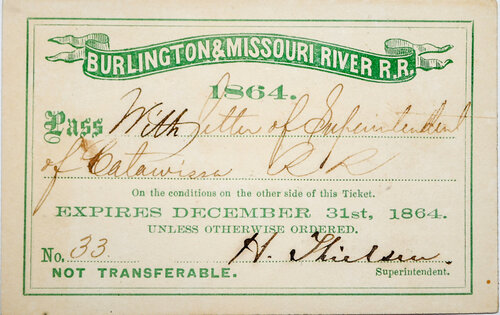 BURLINGTON & MISSOURI RIVER R.R.
1864.
Pass With letter of Superintendent
of Catawissa RR
On the conditions on the other side of this Ticket.
EXPIRES DECEMBER 31st, 1864.
UNLESS OTHERWISE ORDERED.
No. 33 H. Thielsen.
NOT TRANSFERABLE. Superintendent.